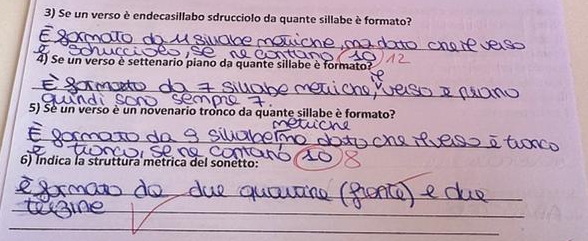 3) Se un verso è endecasillabo sdrucciolo da quante sillabe è formato?
È formato da 11 sillabe metriche, ma dato che il verso
è sdrucciolo, se ne contano 10 12
4) Se un verso è settenario piano da quante sillabe è formato?
È formato da 7 sillabe metriche, il verso è piano
quindi sono sempre 7.
5) Se un verso è un novenario tronco da quante sillabe è formato?
metriche
È formato da 9 sillabe ma dato che il verso è tronco
è tronco, se ne contano 10 8
6) Indica la struttura metrica del sonetto:
è formato da due quartine (fronte) e due
terzine